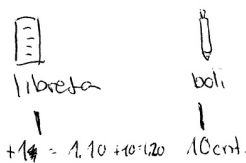 libreta boli
+1€ = 1.10 +10=1.20 10cnt.